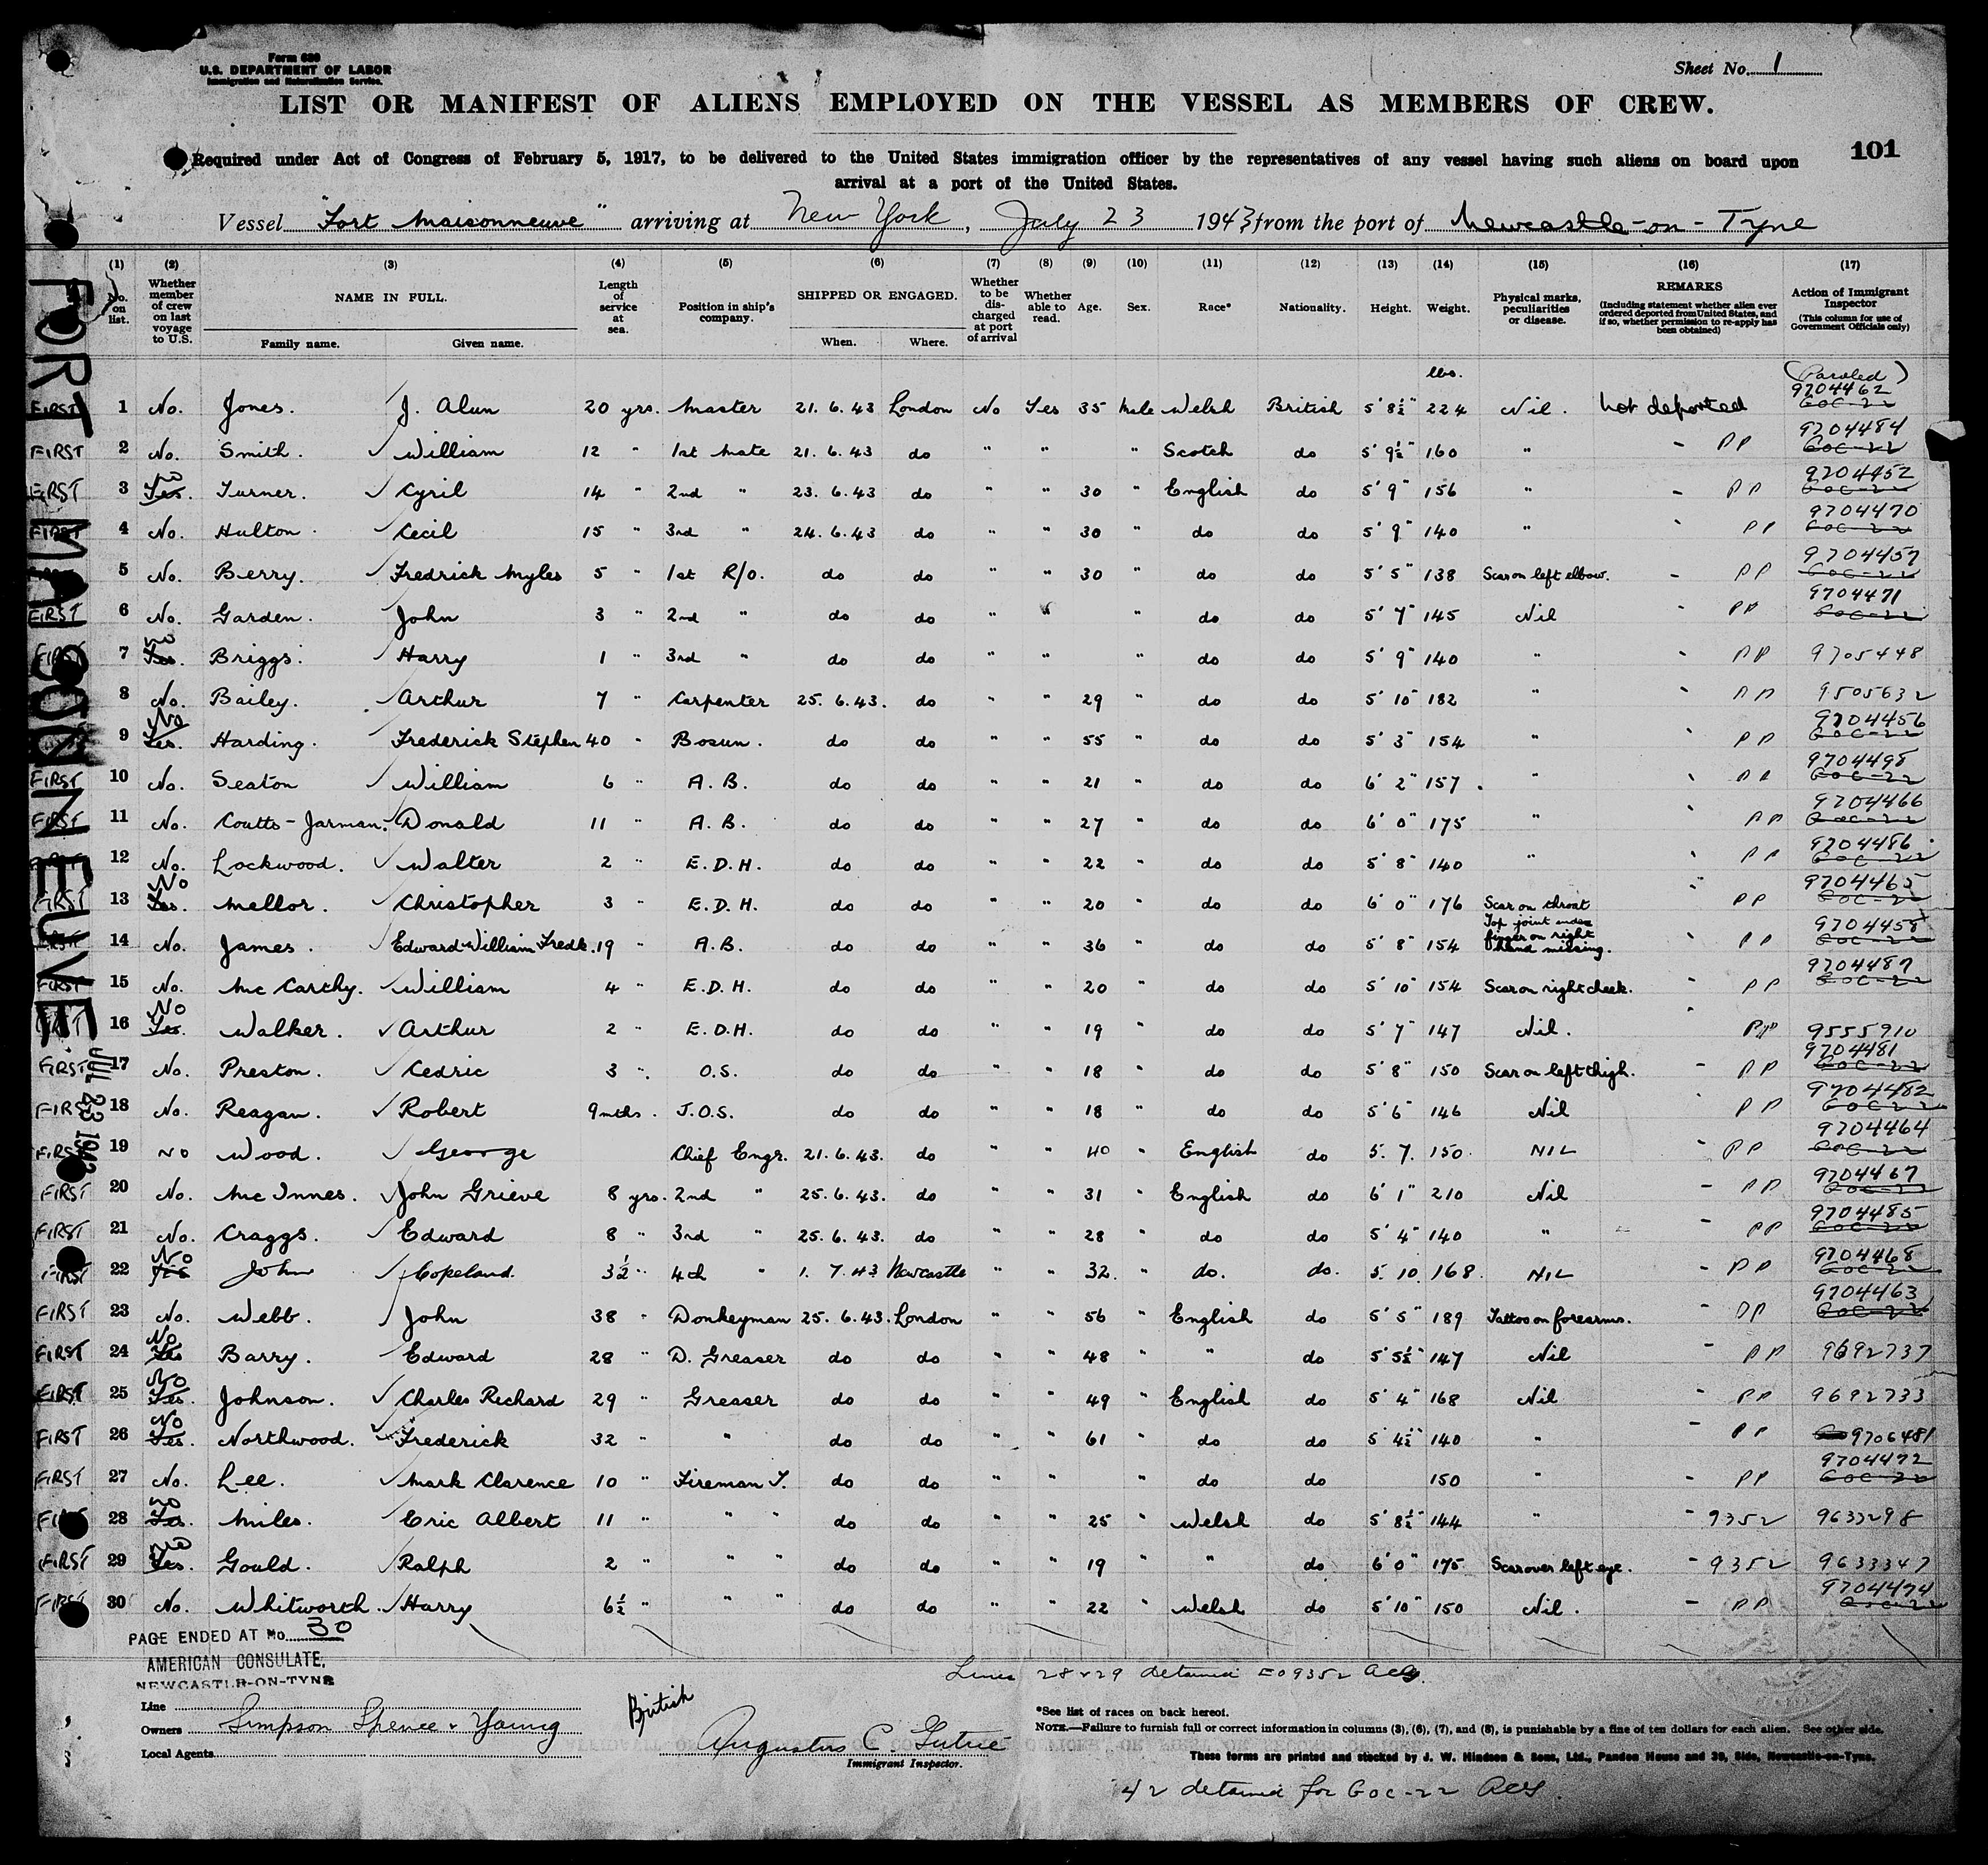 Form 680
U.S. DEPARTMENT OF LABOR
Immigration and Naturalization Service.
Sheet No. 1
LIST OR MANIFEST OF ALIENS EMPLOYED ON THE VESSEL AS MEMBERS OF CREW.
101
Required under Act of Congress of February 5, 1917, to be delivered to the United States immigration officer by the representatives of any vessel having such aliens on board upon
arrival at a port of the United States.
Vessel "Fort Maisonneuve" arriving at New York, July 23 1943 from the port of Newcastle-on-Tyne
(1) (2) (3) (4) (5) (6) (7) (8) (9) (10) (11) (12) (13) (14) (15) (16) (17)
No. on list. Whether member of crew on last voyage to U.S. NAME IN FULL. Family name. Given name. Length of service at sea. Position in ship's company. SHIPPED OR ENGAGED. When. Where. Whether to be discharged at port of arrival Whether able to read. Age. Sex. Race* Nationality. Height. Weight. Physical marks, peculiarities or disease. REMARKS (Including statement whether alien ever ordered deported from United States, and if so, whether permission to re-apply has been obtained) Action of Immigrant Inspector (This column for use of Government Officials only)
lbs. (Paroled)
FIRST 1 No. Jones. J. Alun 20 yrs. Master 21. 6. 43 London No Yes 35 Male Welsh British 5' 8½" 224 Nil. Not deported 9704462 GOC-22
FIRST 2 No. Smith. William 12 " 1st Mate 21. 6. 43 do " " " Scotch do 5' 9½" 160 " - PP 9704484 GOC-22
FIRST 3 No Yes. Turner. Cyril 14 " 2nd " 23. 6. 43 do " " 30 " English do 5' 9" 156 " - PP 9704452 GOC-22
FIRST 4 No. Hulton. Cecil 15 " 3rd " 24. 6. 43 do " " 30 " do do 5' 9" 140 " " PP 9704470 GOC-22
FIRST 5 No. Berry. Fredrick Myles 5 " 1st R/O. do do " " 30 " do do 5' 5" 138 Scar on left elbow. - PP 9704457 GOC-22
FIRST 6 No. Garden. John 3 " 2nd " do do " " " do do 5' 7" 145 Nil " PP 9704471 GOC-22
FIRST 7 No Yes. Briggs. Harry 1 " 3rd " do do " " " do do 5' 9" 140 " " PP 9705448
FIRST 8 No. Bailey. Arthur 7 " Carpenter 25. 6. 43. do " " 29 " do do 5' 10" 182 " " PP 9505632
FIRST 9 No Yes. Harding. Frederick Stephen 40 " Bosun. do do " " 55 " do do 5' 3" 154 " " PP 9704456 GOC-22
FIRST 10 No. Seaton William 6 " A. B. do do " " 21 " do do 6' 2" 157. " " PP 9704498 GOC-22
FIRST 11 No. Coutts-Jarman. Donald 11 " A. B. do do " " 27 " do do 6' 0" 175 " " PP 9704466 GOC-22
FIRST 12 No. Lockwood. Walter 2 " E. D. H. do do " " 22 " do do 5' 8" 140 " " PP 9704486 GOC-22
FIRST 13 No Yes. Mellor. Christopher 3 " E. D. H. do do " " 20 " do do 6' 0" 176 Scar on throat " PP 9704465 GOC-22
FIRST 14 No. James. Edward William Fredk. 19 " A. B. do do " " 36 " do do 5' 8" 154 Top joint index finger on right hand missing. " PP 9704458 GOC-22
FIRST 15 No. McCarthy. William 4 " E. D. H. do do " " 20 " do do 5' 10" 154 Scar on right cheek. " PP 9704487 GOC-22
FIRST 16 No Yes. Walker. Arthur 2 " E. D. H. do do " " 19 " do do 5' 7" 147 Nil. " PP 9555910
FIRST 17 No. Preston. Cedric 3 " O.S. do do " " 18 " do do 5' 8" 150 Scar on left thigh. - PP 9704481 GOC-22
FIRST 18 No. Reagan. Robert 9 mths. J.O.S. do do " " 18 " do do 5' 6" 146 Nil " PP 9704482 GOC-22
FIRST 19 NO Wood. George Chief Engr. 21. 6. 43. do " " 40 " English do 5. 7. 150. NIL " PP 9704464 GOC-22
FIRST 20 No. McInnes. John Grieve 8 yrs. 2nd " 25. 6. 43. do " " 31 " English do 6' 1" 210 Nil - PP 9704467 GOC-22
FIRST 21 No. Craggs. Edward 8 " 3rd " 25. 6. 43. do " " 28 " do do 5' 4" 140 " - PP 9704485 GOC-22
FIRST 22 No Yes John Copeland. 3½ " 4th " 1. 7. 43 Newcastle " " 32. " do. do. 5. 10. 168. NIL - PP 9704468 GOC-22
FIRST 23 No. Webb. John 38 " Donkeyman 25. 6. 43. London " " 56 " English do 5' 5" 189 Tattoo on forearms. - PP 9704463 GOC-22
FIRST 24 No Yes Barry. Edward 28 " D. Greaser do do " " 48 " " do 5' 5½" 147 Nil " PP 9692737
FIRST 25 No Yes. Johnson. Charles Richard 29 " Greaser do do " " 49 " English do 5' 4" 168 Nil " PP 9692733
FIRST 26 No Yes. Northwood. Frederick 32 " " do do " " 61 " do do 5' 4½" 140 " - PP 9706481
FIRST 27 No. Lee. Mark Clarence 10 " Fireman T. do do " " " do do 150 " - PP 9704472 GOC-22
FIRST 28 No Yes. Miles. Eric Albert 11 " " " do do " " 25 " Welsh do 5' 8½" 144 " - 9352 9633298
FIRST 29 No Yes. Gould. Ralph 2 " " " do do " " 19 " do 6' 0" 175 Scar over left eye. - 9352 9633347
FIRST 30 No. Whitworth. Harry 6½ " " " do do " " 22 " Welsh do 5' 10" 150 Nil. - PP 9704474 GOC-22
FORT MAISONNEUVE
JUL 23 1943
PAGE ENDED AT No. 30
AMERICAN CONSULATE,
NEWCASTLE-ON-TYNE
Lines 28 & 29 detained EO 9352 ACG.
Line
Owners Simpson Spence & Young
Local Agents
British
Augustus C.
Immigrant Inspector.
*See list of races on back hereof.
NOTE.—Failure to furnish full or correct information in columns (3), (6), (7), and (8), is punishable by a fine of ten dollars for each alien. See other side.
These forms are printed and stocked by J. W. Hindson & Sons, Ltd., Pandon House and 39, Side, Newcastle-on-Tyne.
42 detained for GOC-22 ACG.